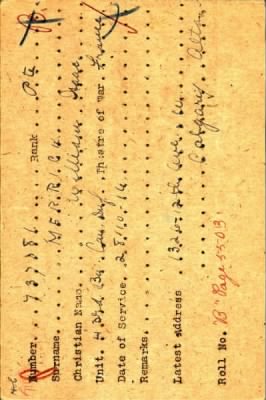 Number. 737381 Rank Pte
Surname. MERRICK
Christian Name. William
Unit. Theatre of War France
Date of Service. 28.10.16
Remarks.
Latest Address 1320. 2th Ave.
Calgary Alta
Roll No. "B" Page 5503